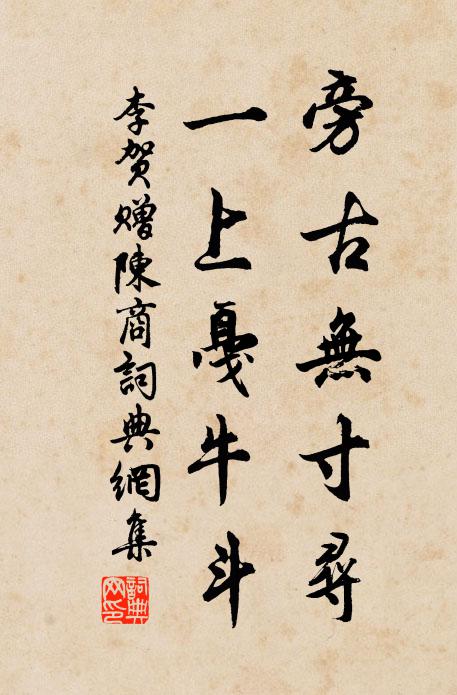 旁古無寸尋
一上戛牛斗
李賀贈陳商詞典網集
詞典
网印